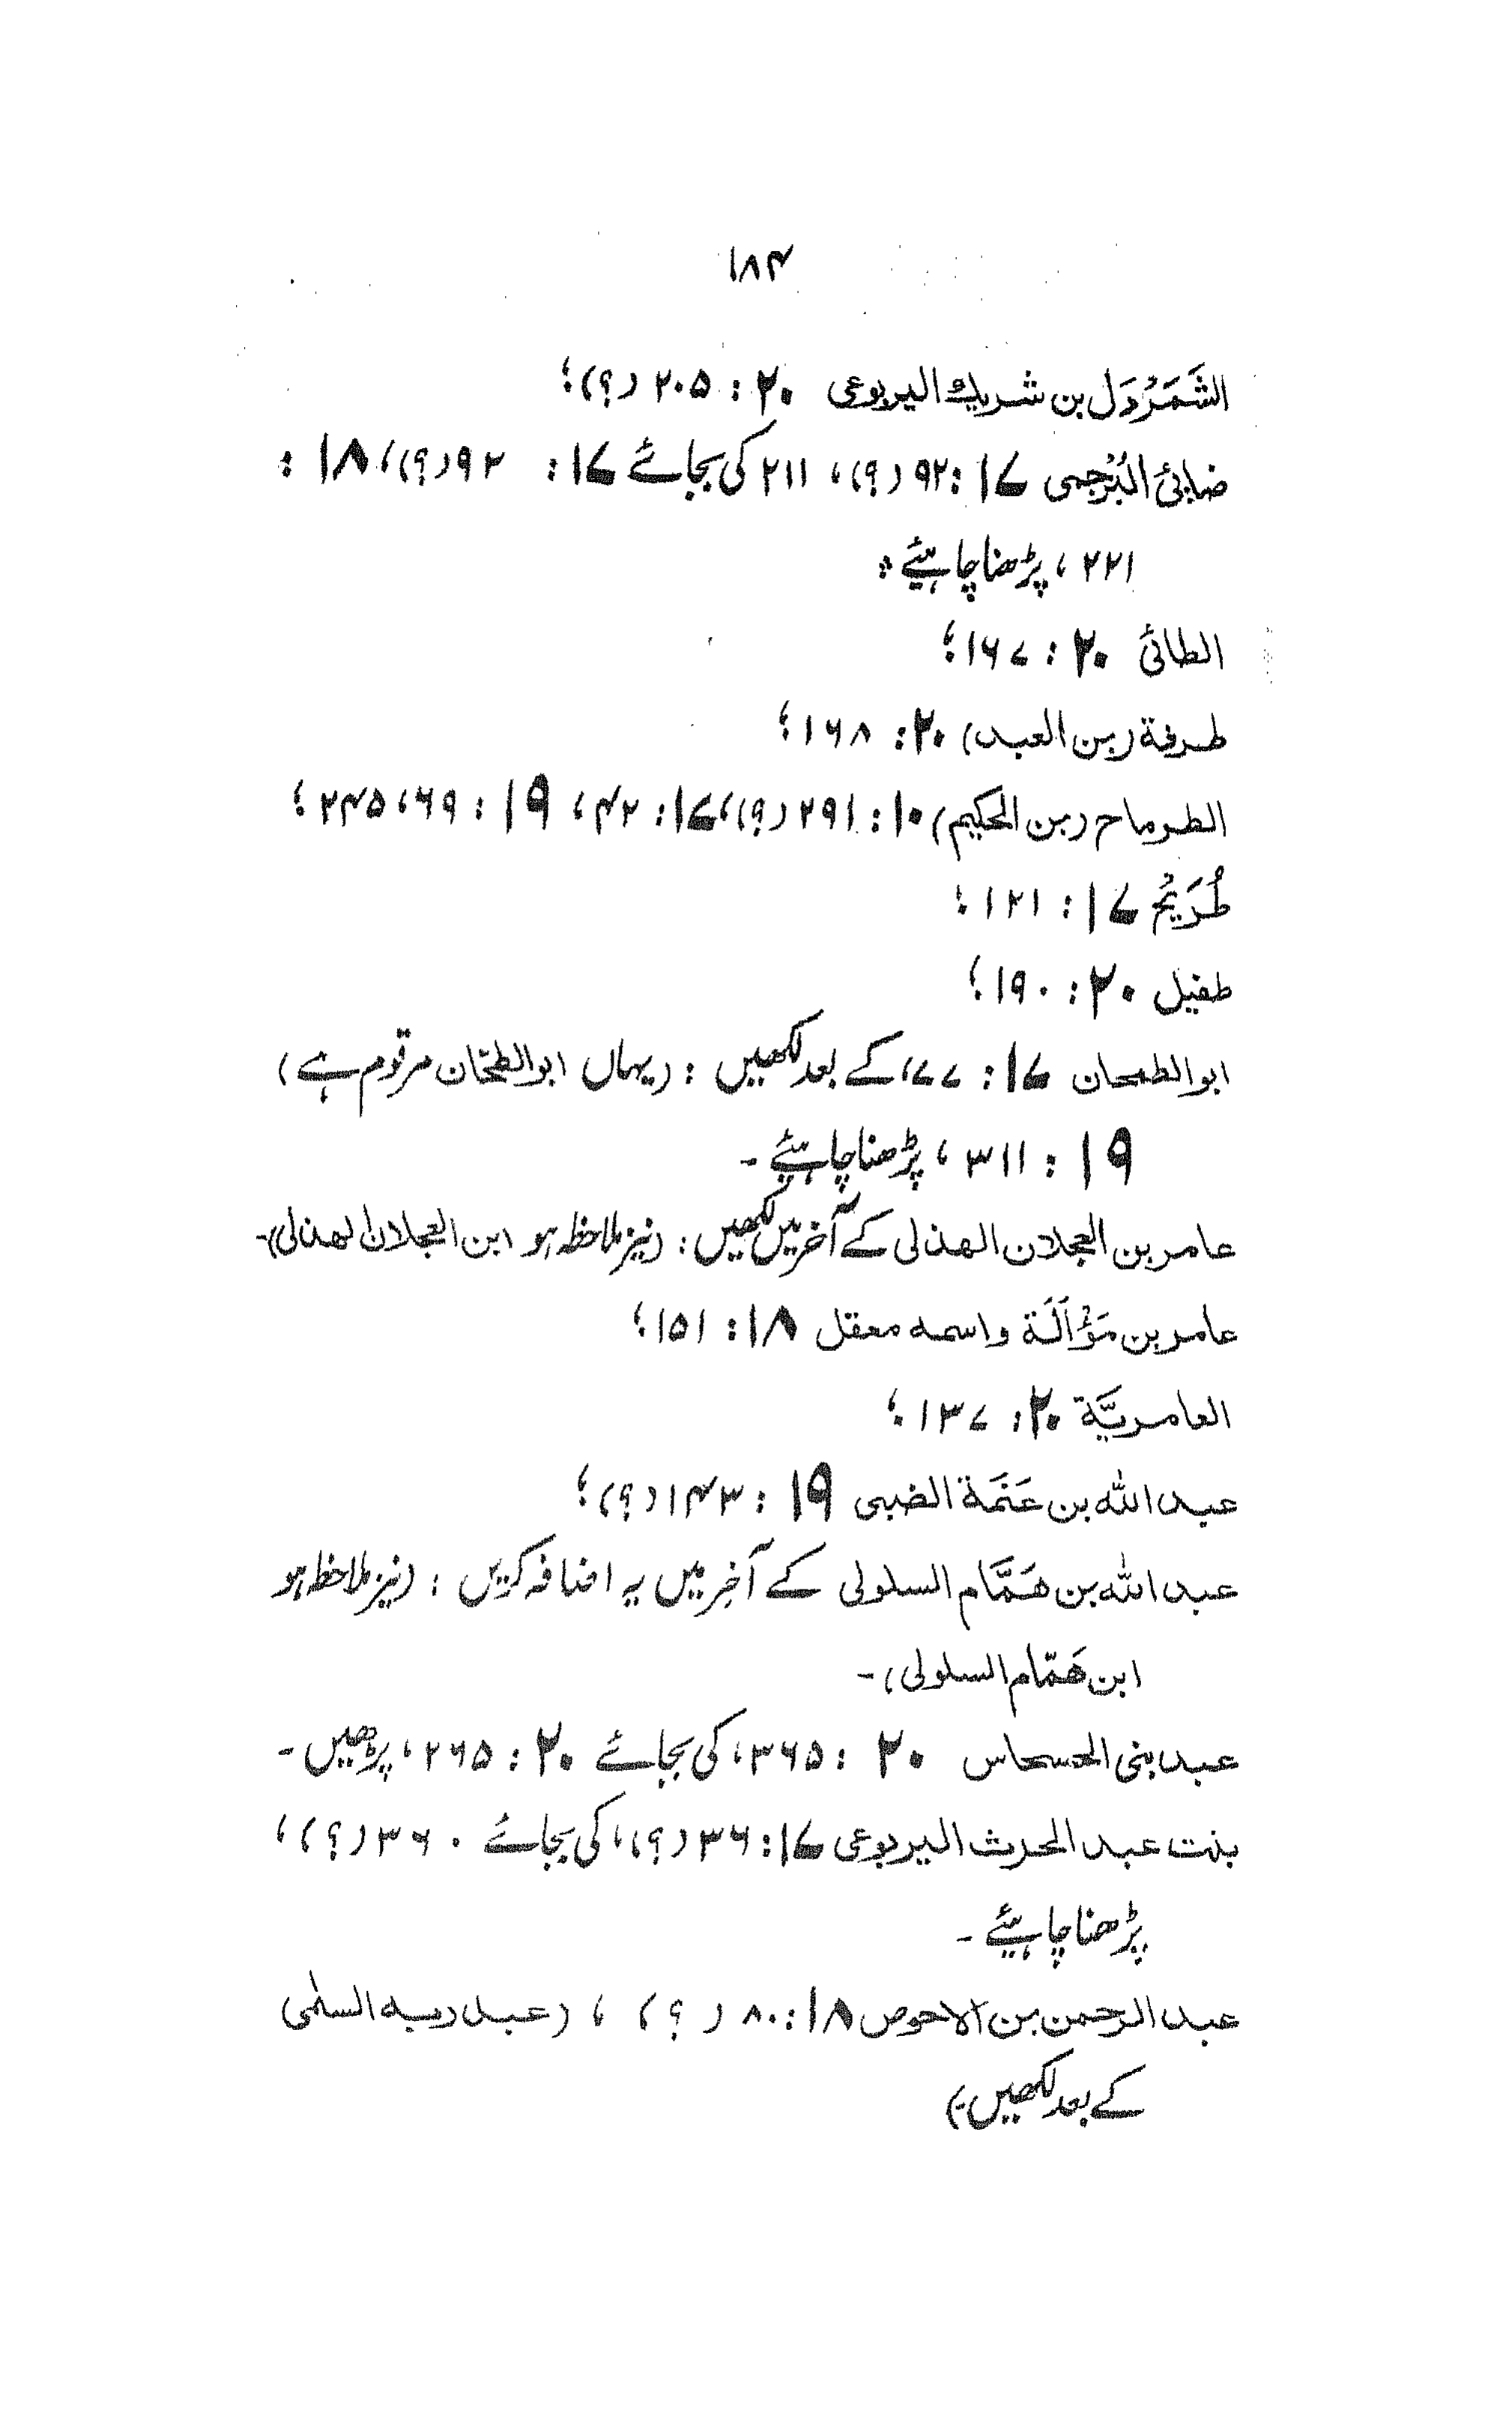 ۱۸۴
الشَمَرْدَل بن شریك الیربوعی ۲۰ : ۲۰۵ (؟)؛
ضابئ البُرْجمی ۱۷ : ۹۲ (؟)، ۲۱۱ کی بجائے ۱۷ : ۹۲ (؟)، ۱۸ :
۲۲۱ ، پڑھنا چاہیئے ؛
الطائی ۲۰ : ۱۶۷ ؛
طرفة (بن العبد) ۲۰ : ۱۶۸ ؛
الطرماح (بن الحکیم) ۱۰ : ۲۹۱ (؟)، ۱۷ : ۴۲ ، ۱۹ : ۶۹ ، ۲۴۵ ؛
طُرَیْح ۱۷ : ۱۲۱ ؛
طفیل ۲۰ : ۱۹۰ ؛
ابوالطمحان ۱۷ : ۷۷ ، کے بعد لکھیں : (یہاں ابوالطمّحان مرقوم ہے)
۱۹ : ۳۱۱ ، پڑھنا چاہیئے ۔
عامر بن العجلان الھذلی کے آخر میں لکھیں : (نیز ملاحظہ ہو ابن العجلان الھذلی)۔
عامر بن مَوْأَلَة واسمه معقل ۱۸ : ۱۵۱ ؛
العامریَّة ۲۰ : ۱۳۷ ؛
عبد اللّٰه بن عَنَمَة الضبی ۱۹ : ۱۴۳ (؟) ؛
عبد اللّٰه بن هَمَّام السلولی کے آخر میں یہ اضافہ کریں : (نیز ملاحظہ ہو
ابن هَمّام السلولی) ۔
عبد بنی الحسحاس ۲۰ : ۳۶۵ ، کی بجائے ۲۰ : ۲۶۵ ، پڑھیں ۔
بنت عبد الحرث الیربوعی ۱۷ : ۳۶ (؟) ، کی بجائے ۳۶۰ (؟) ،
پڑھنا چاہیئے ۔
عبد الرحمن بن الاحوص ۱۸ : ۸۰ (؟) ، (عبد ربه السلمی
کے بعد لکھیں ۔)